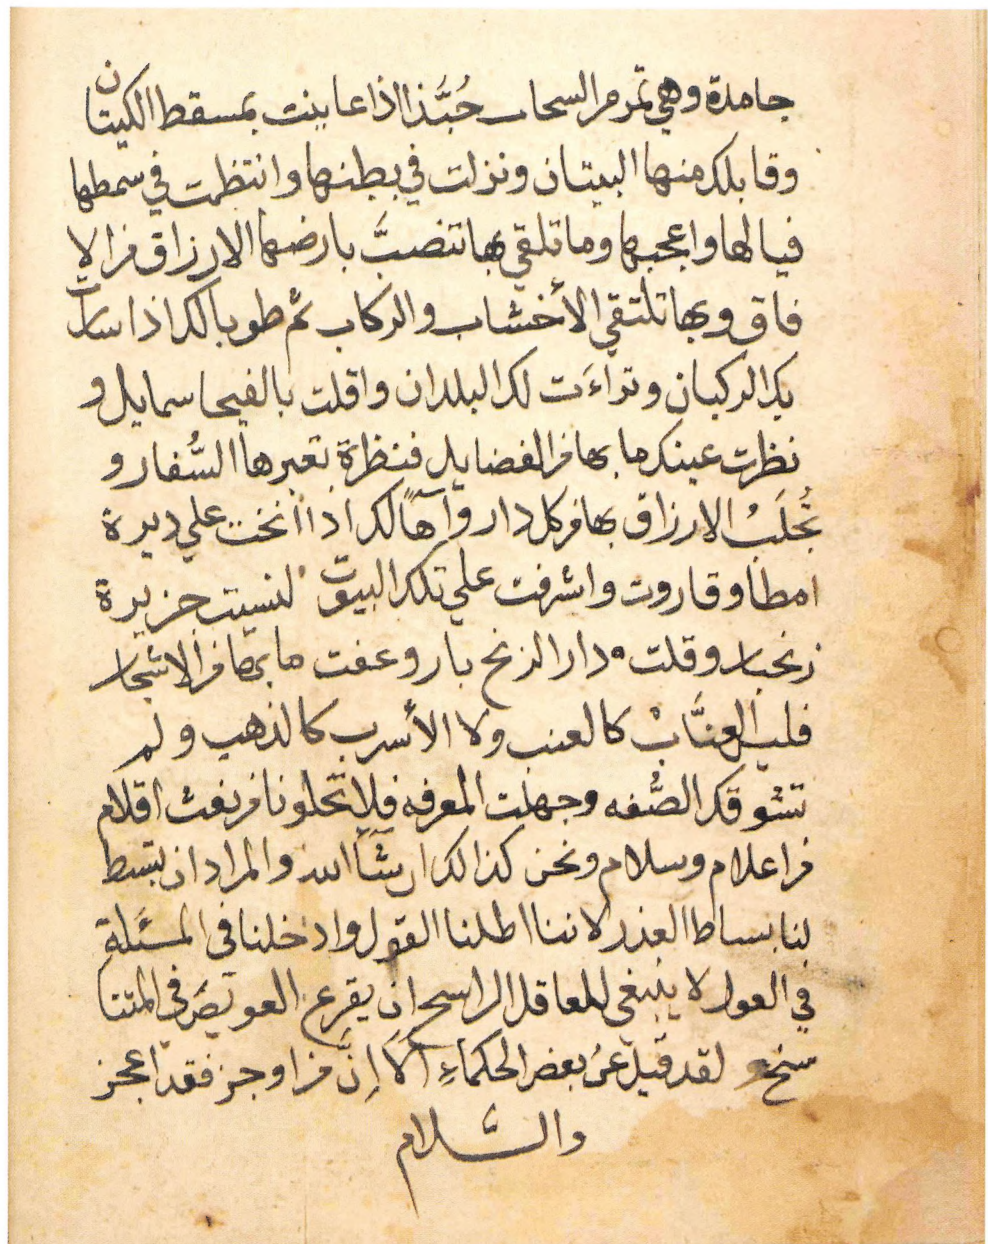 جامدة وهي تمر مر السحاب حُبَّذا اذا عاينت بمسقط الكيتان
وقابلك منها البيتان ونزلت في بطنها وانتظمت في سمطها
فيالها واعجبها وما تلقي بها تنصبَّ بارضها الارزاق من الا
فاق وبها تلتقي الأخشاب والركاب ثم طوبا لك اذا سارت
بك الركبان وتراءَت لك البلدان واقلت بالفيحا سمايل و
نظرت عينك ما بها من الفضايل فنظرة تعبرها السُّفار و
تُجلَبُ الارزاق بها من كل دار وآهاً لك اذا أنخت علي ديرة
امطا وقاروت واشرفت علي تلك البيوت لنسيت جزيرة
زنجبار وقلت دار الزنج بار وعفت ما بها من الاشجار
فليس العنَّابْ كالعنب ولا الأسرب كالذهب ولم
تشوقك الصُّفه وجهلت المعرفه فلا تخلونا من نفث اقلام
من اعلام وسلام ونحن كذالك ان شَآ الله والمراد ان تبسط
لنا بساط العذر لاننا اطلنا القول وادخلنا في المسَئلة
في العول لا ينبغي للعاقل الراسخ ان يقرع العو يصَ في المتنا
سخ لقد قيل عن بعض الحكماءِ الا إنَّ من اوجز فقد اعجز
والسَّلام